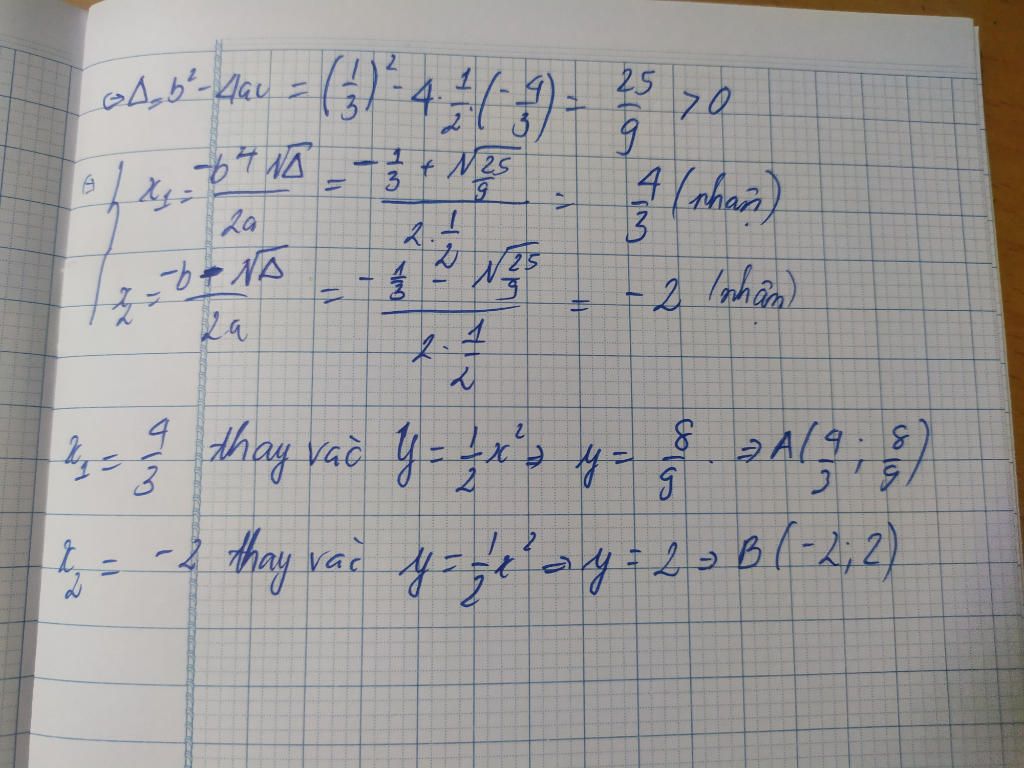 ⇔ Δ = b² - 4ac = (1/3)² - 4 · 1/2 · (-4/3) = 25/9 > 0
⇔ { x₁ = (-b + √Δ)/2a = (-1/3 + √(25/9))/(2 · 1/2) = 4/3 (nhận)
x₂ = (-b - √Δ)/2a = (-1/3 - √(25/9))/(2 · 1/2) = -2 (nhận)
x₁ = 4/3 thay vào y = 1/2 x² ⇒ y = 8/9. ⇒ A(4/3; 8/9)
x₂ = -2 thay vào y = 1/2 x² ⇒ y = 2 ⇒ B(-2; 2)